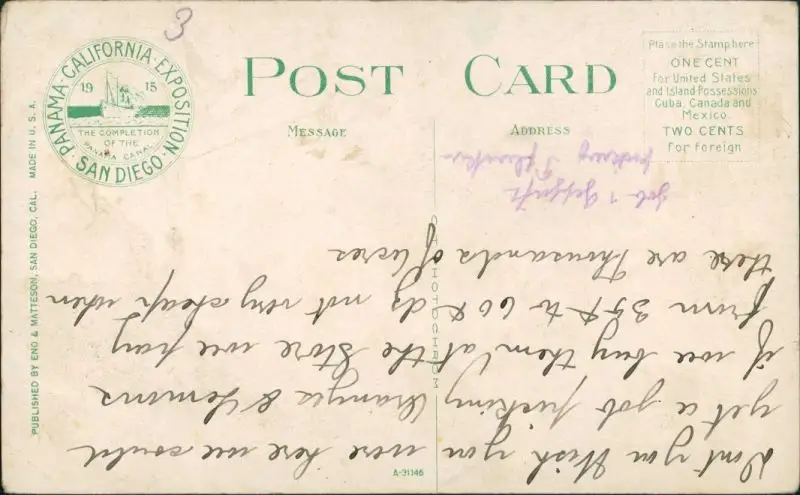 3
PANAMA · CALIFORNIA · EXPOSITION
1915
THE COMPLETION
OF THE
PANAMA CANAL
SAN DIEGO
POST CARD
MESSAGE
ADDRESS
Place the Stamp here
ONE CENT
For United States
and Island Possessions
Cuba, Canada and
Mexico.
TWO CENTS
For Foreign
PUBLISHED BY ENO & MATTESON, SAN DIEGO, CAL. MADE IN U. S. A.
PHOTOCHROM
A-31146
Dont you Wish you were here we could
get a job picking Oranges & Lemons
if we buy them at the Store we pay
from 35¢ to 60¢ dz not very cheap when
there are thousands of acres